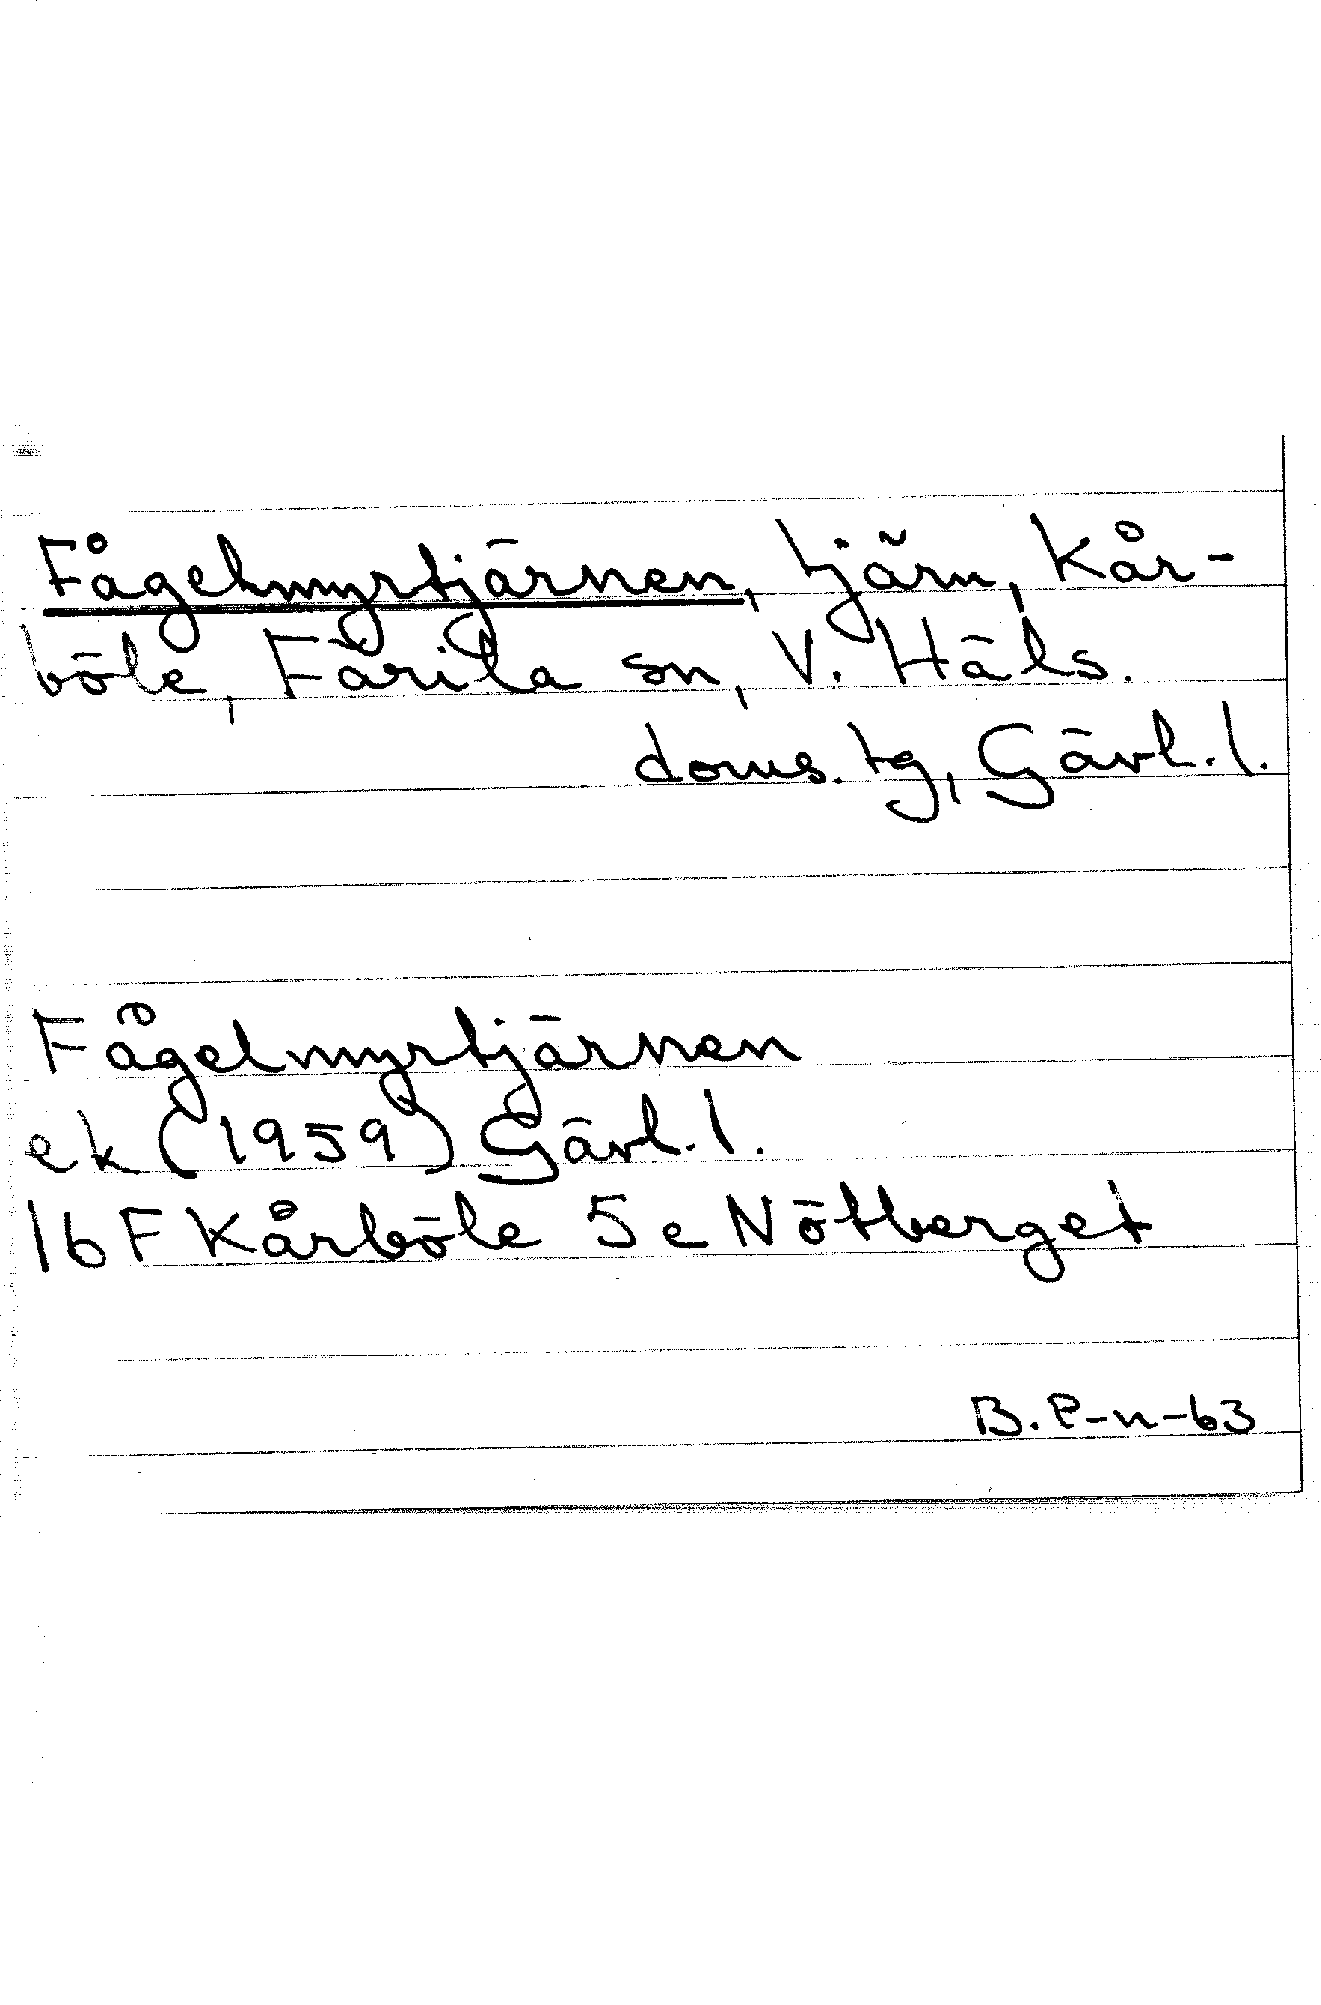 Fågelmyrtjärnen, tjärn, Kår-
böle, Färila sn, V. Häls.
doms. tg, Gävl. l.
Fågelmyrtjärnen
ek (1959) Gävl. l.
16 F Kårböle 5 e Nötberget
B. P-n-63